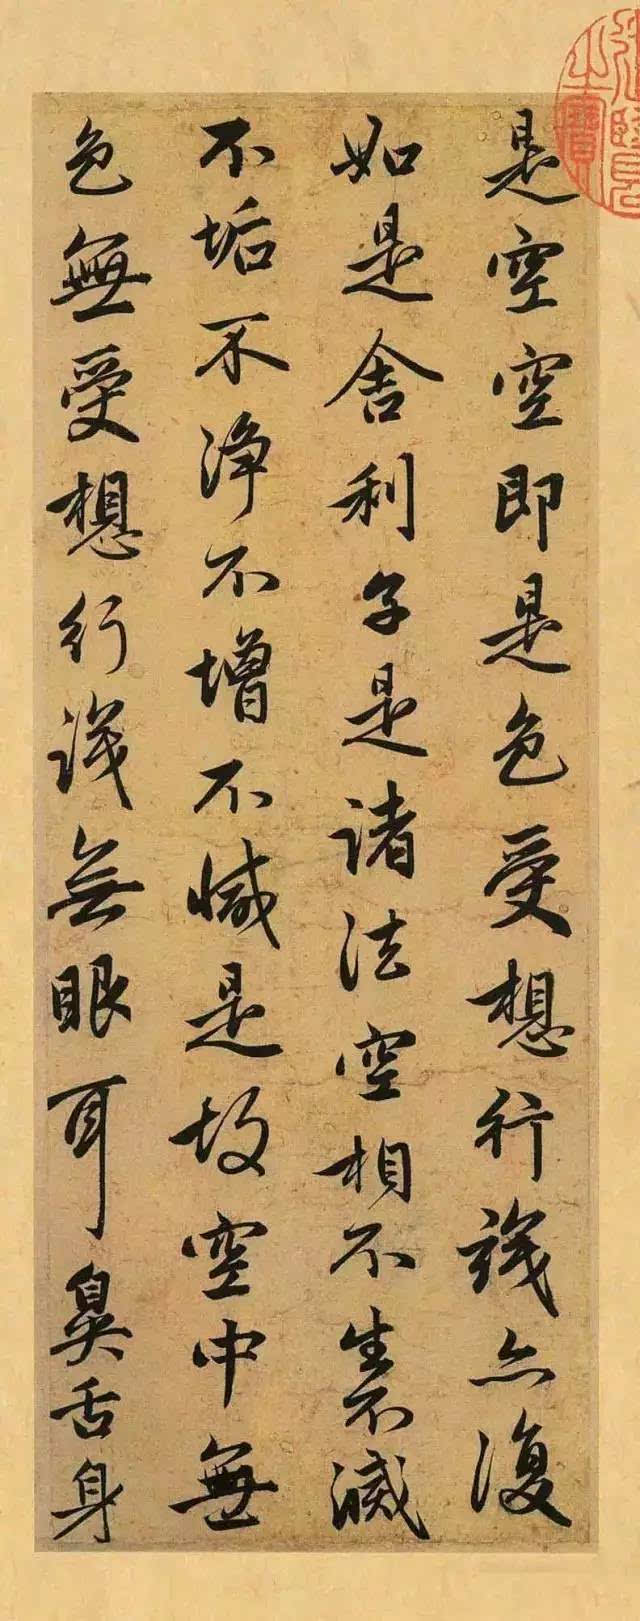 是空空即是色受想行識亦復
如是舍利子是諸法空相不生不滅
不垢不净不增不減是故空中無
色無受想行識無眼耳鼻舌身